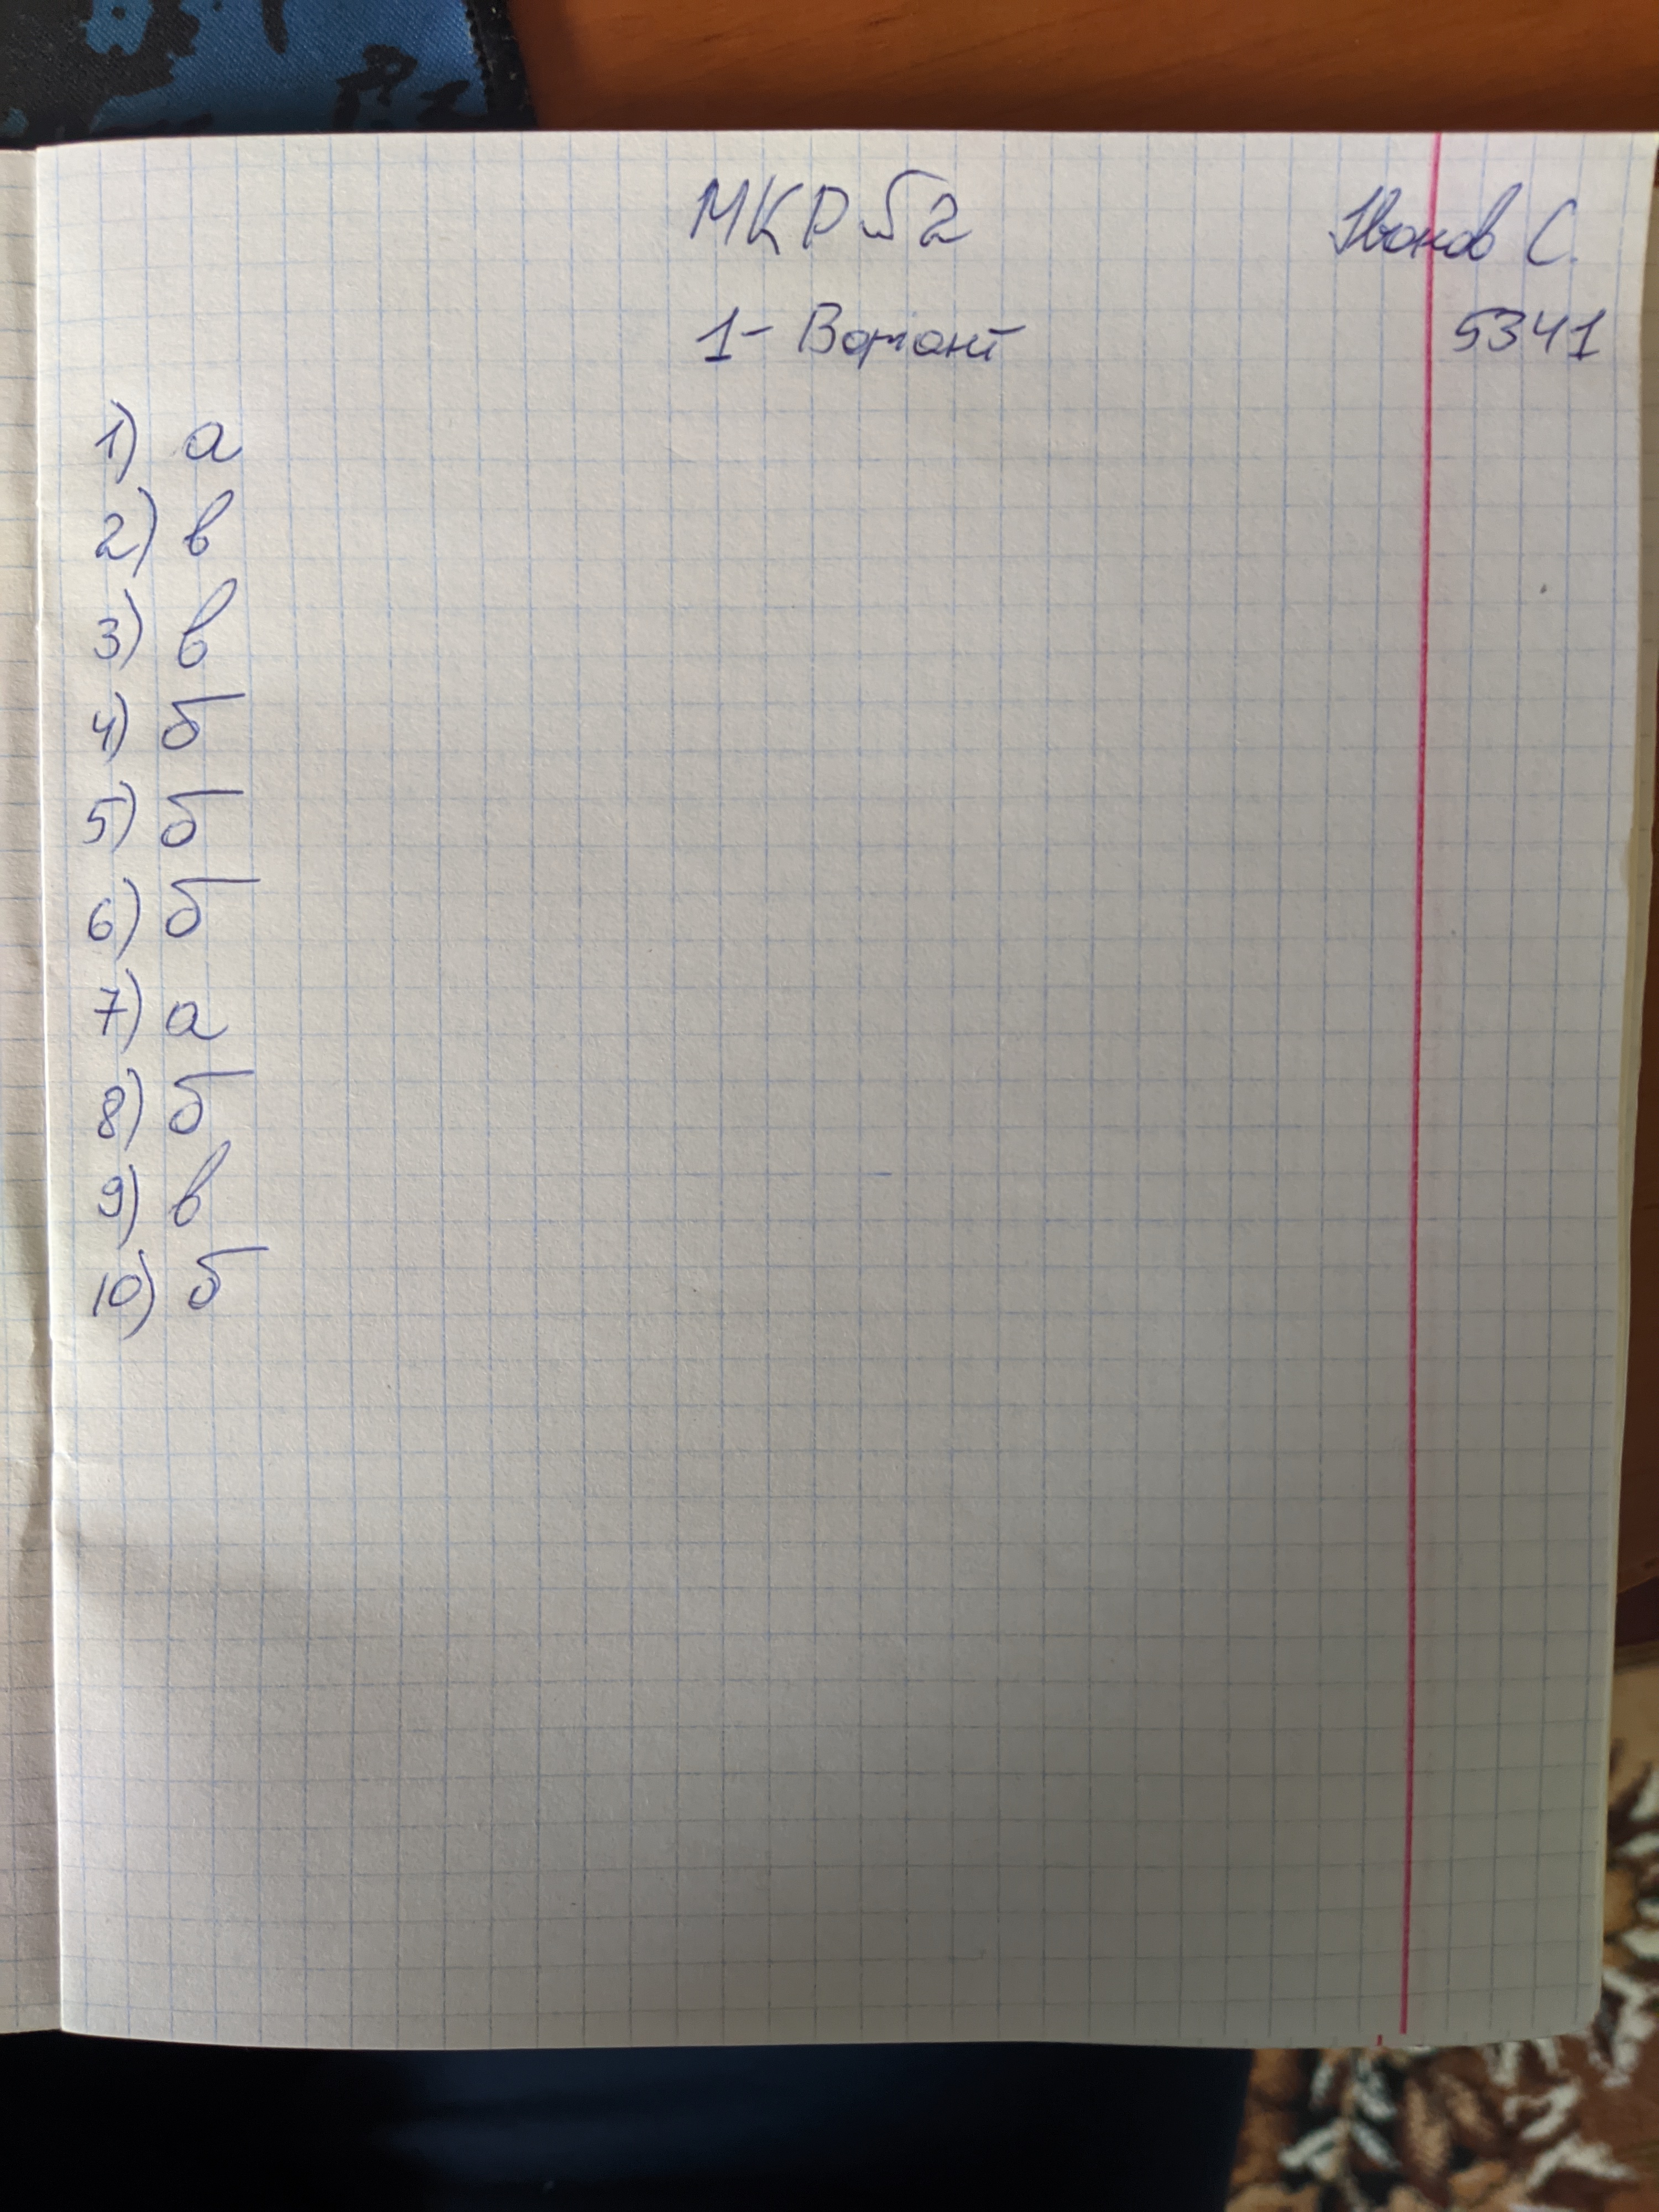 МКР №2
Иванов С.
1- Вариант
5341
1) а
2) в
3) в
4) б
5) б
6) б
7) а
8) б
9) в
10) б